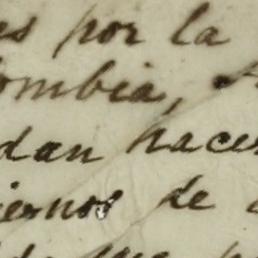 es por la
ombia,
dan hacer
iernos de